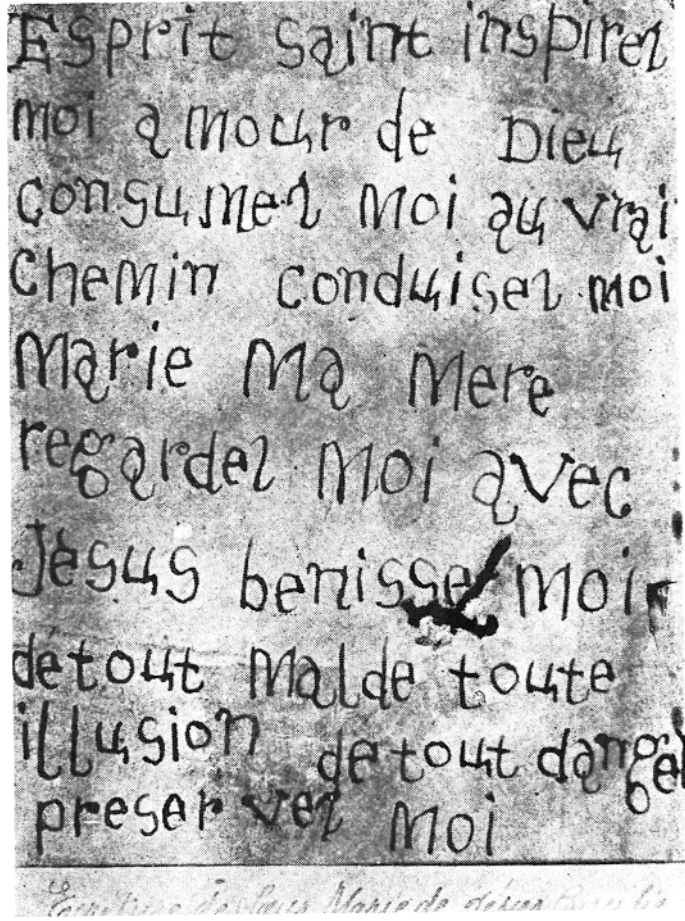 Esprit saint inspirez
moi amour de Dieu
consumez moi au vrai
chemin conduisez moi
Marie Ma Mere
regardez moi avec
Jèsus benissez moi
dètout Malde toute
illusion detout danger
preser vez moi
Ecriture de Marie de